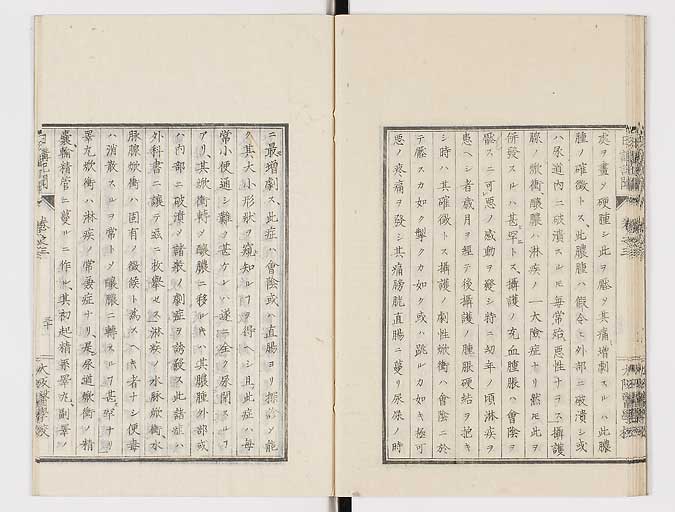 處ヲ畫ク硬腫シ此ヲ壓ク其痛増劇スルハ此膿
腫ノ確徴トス、此膿腫ハ假令ヒ外部ニ破潰シ或
ハ尿道内ニ破潰スルモ毎常殆惡性ナヲス攝護
腺ノ焮衝釀膿ハ淋疾ノ一大險症ナリ然モ此ヲ
併發スルハ甚罕トス、攝護ノ充血腫脹ハ會陰ヲ
壓スニ可惡ノ感動ヲ發シ特ニ幼年ノ頃淋疾ヲ
患ヘシ者歳月ヲ經テ後攝護ノ腫脹硬結ヲ抱キ
シ時ハ其確徴トス攝護ノ劇性焮衝ハ會陰ニ於
テ壓スカ如ク撃クカ如ク或ハ跳ルカ如キ極可
惡ノ疼痛ヲ發シ其痛膀胱直腸ニ蔓リ尿屎ノ時
ニ最増劇ス、此症ハ會陰或ハ直腸ヨリ探診シ能
ク其大小形狀ヲ窺知ルヿヲ得ヘシ且此症ハ毎
常小便通シ難ク甚ケレハ遂ニ全ク尿閉スルヿ
アリ、其焮衝轉シ釀膿ニ移ルキハ其膿腫外部或
ハ内部ニ破潰シ諸般ノ劇症ヲ誘發ス此諸症ハ
外科書ニ讓テ茲ニ枚擧セス淋疾ノ水脉焮衝、水
脉腺焮衝ハ固有ノ徴候ト爲スヘキ者ナシ便毒
ハ消散スルヲ常トシ釀膿ニ轉スルヿ甚罕ナリ
睪丸焮衝ハ淋疾ノ常套症ナリ、是尿道焮衝ノ精
囊輸精管ニ蔓ルニ作ル、其初起精系睪丸副睪ノ
卷之三
三十
大阪醫學校